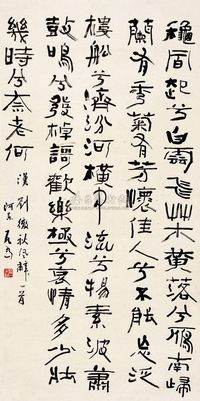 穐風起兮白雲飛艸木黃落兮雁南歸
蘭有秀菊有芳懷佳人兮不能忘泛
樓船兮濟汾河橫中流兮揚素波蕭
鼓鳴兮發棹謌歡樂極兮哀情多少壯
幾時兮奈老何
漢劉徹秋風辭一首
河东